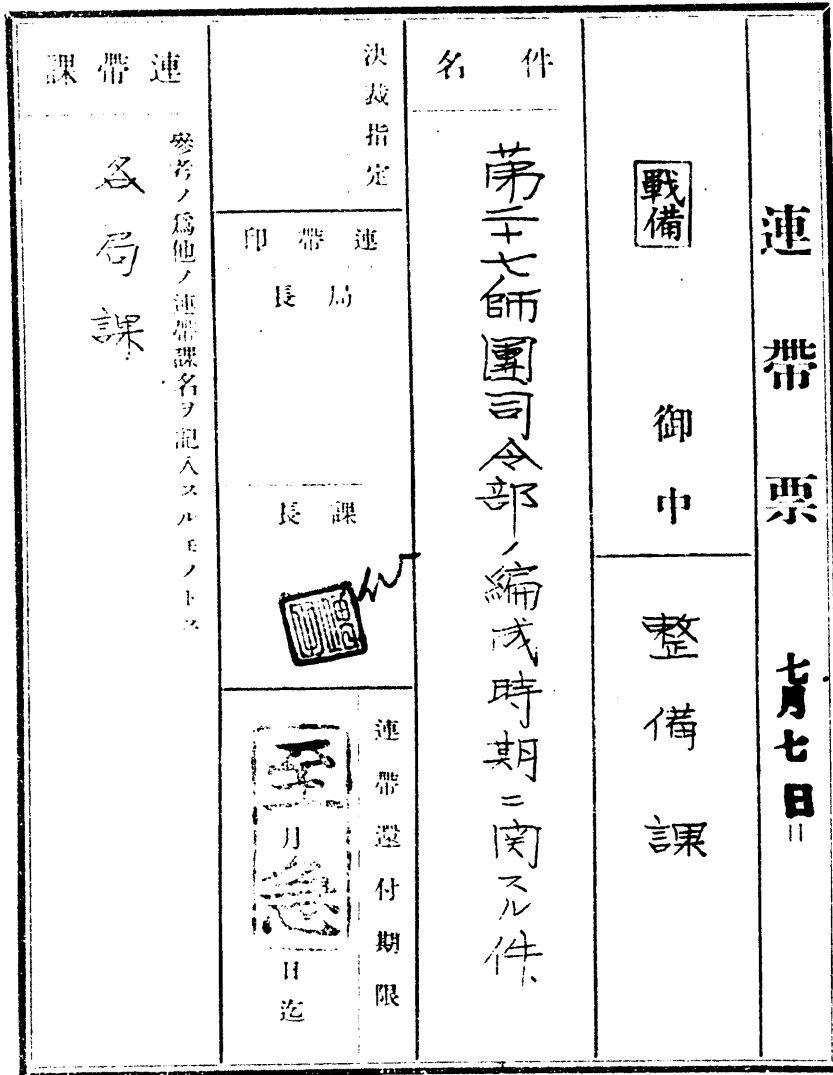 連帶票 七月七日
戰備 御中 整備課
件名
第二十七師團司令部ノ編成時期ニ関スル件
決裁指定
連帶印
局長
課長
連帶還付期限
至急
月 日迄
連帶課
參考ノ爲他ノ連帶課名ヲ記入スルモノトス
各局課